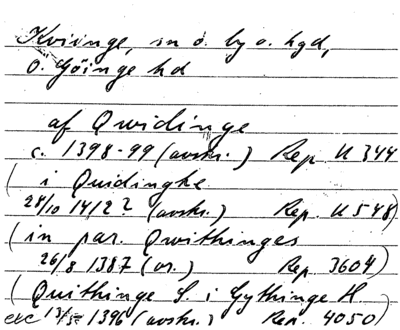 Kviinge, sn o. by o. hgd,
Ö. Göinge hd
af Qwidinge
c. 1398-99 (avskr.) Rep II 344
(i Quidinghe
28/10 1412? (avskr.) Rep. II 548)
(in par. Qwithinges
26/8 1387 (or.) Rep 3604)
(Quithinge S. i Gythinge H.
13/5 1396 (avskr.) Rep. 4050)